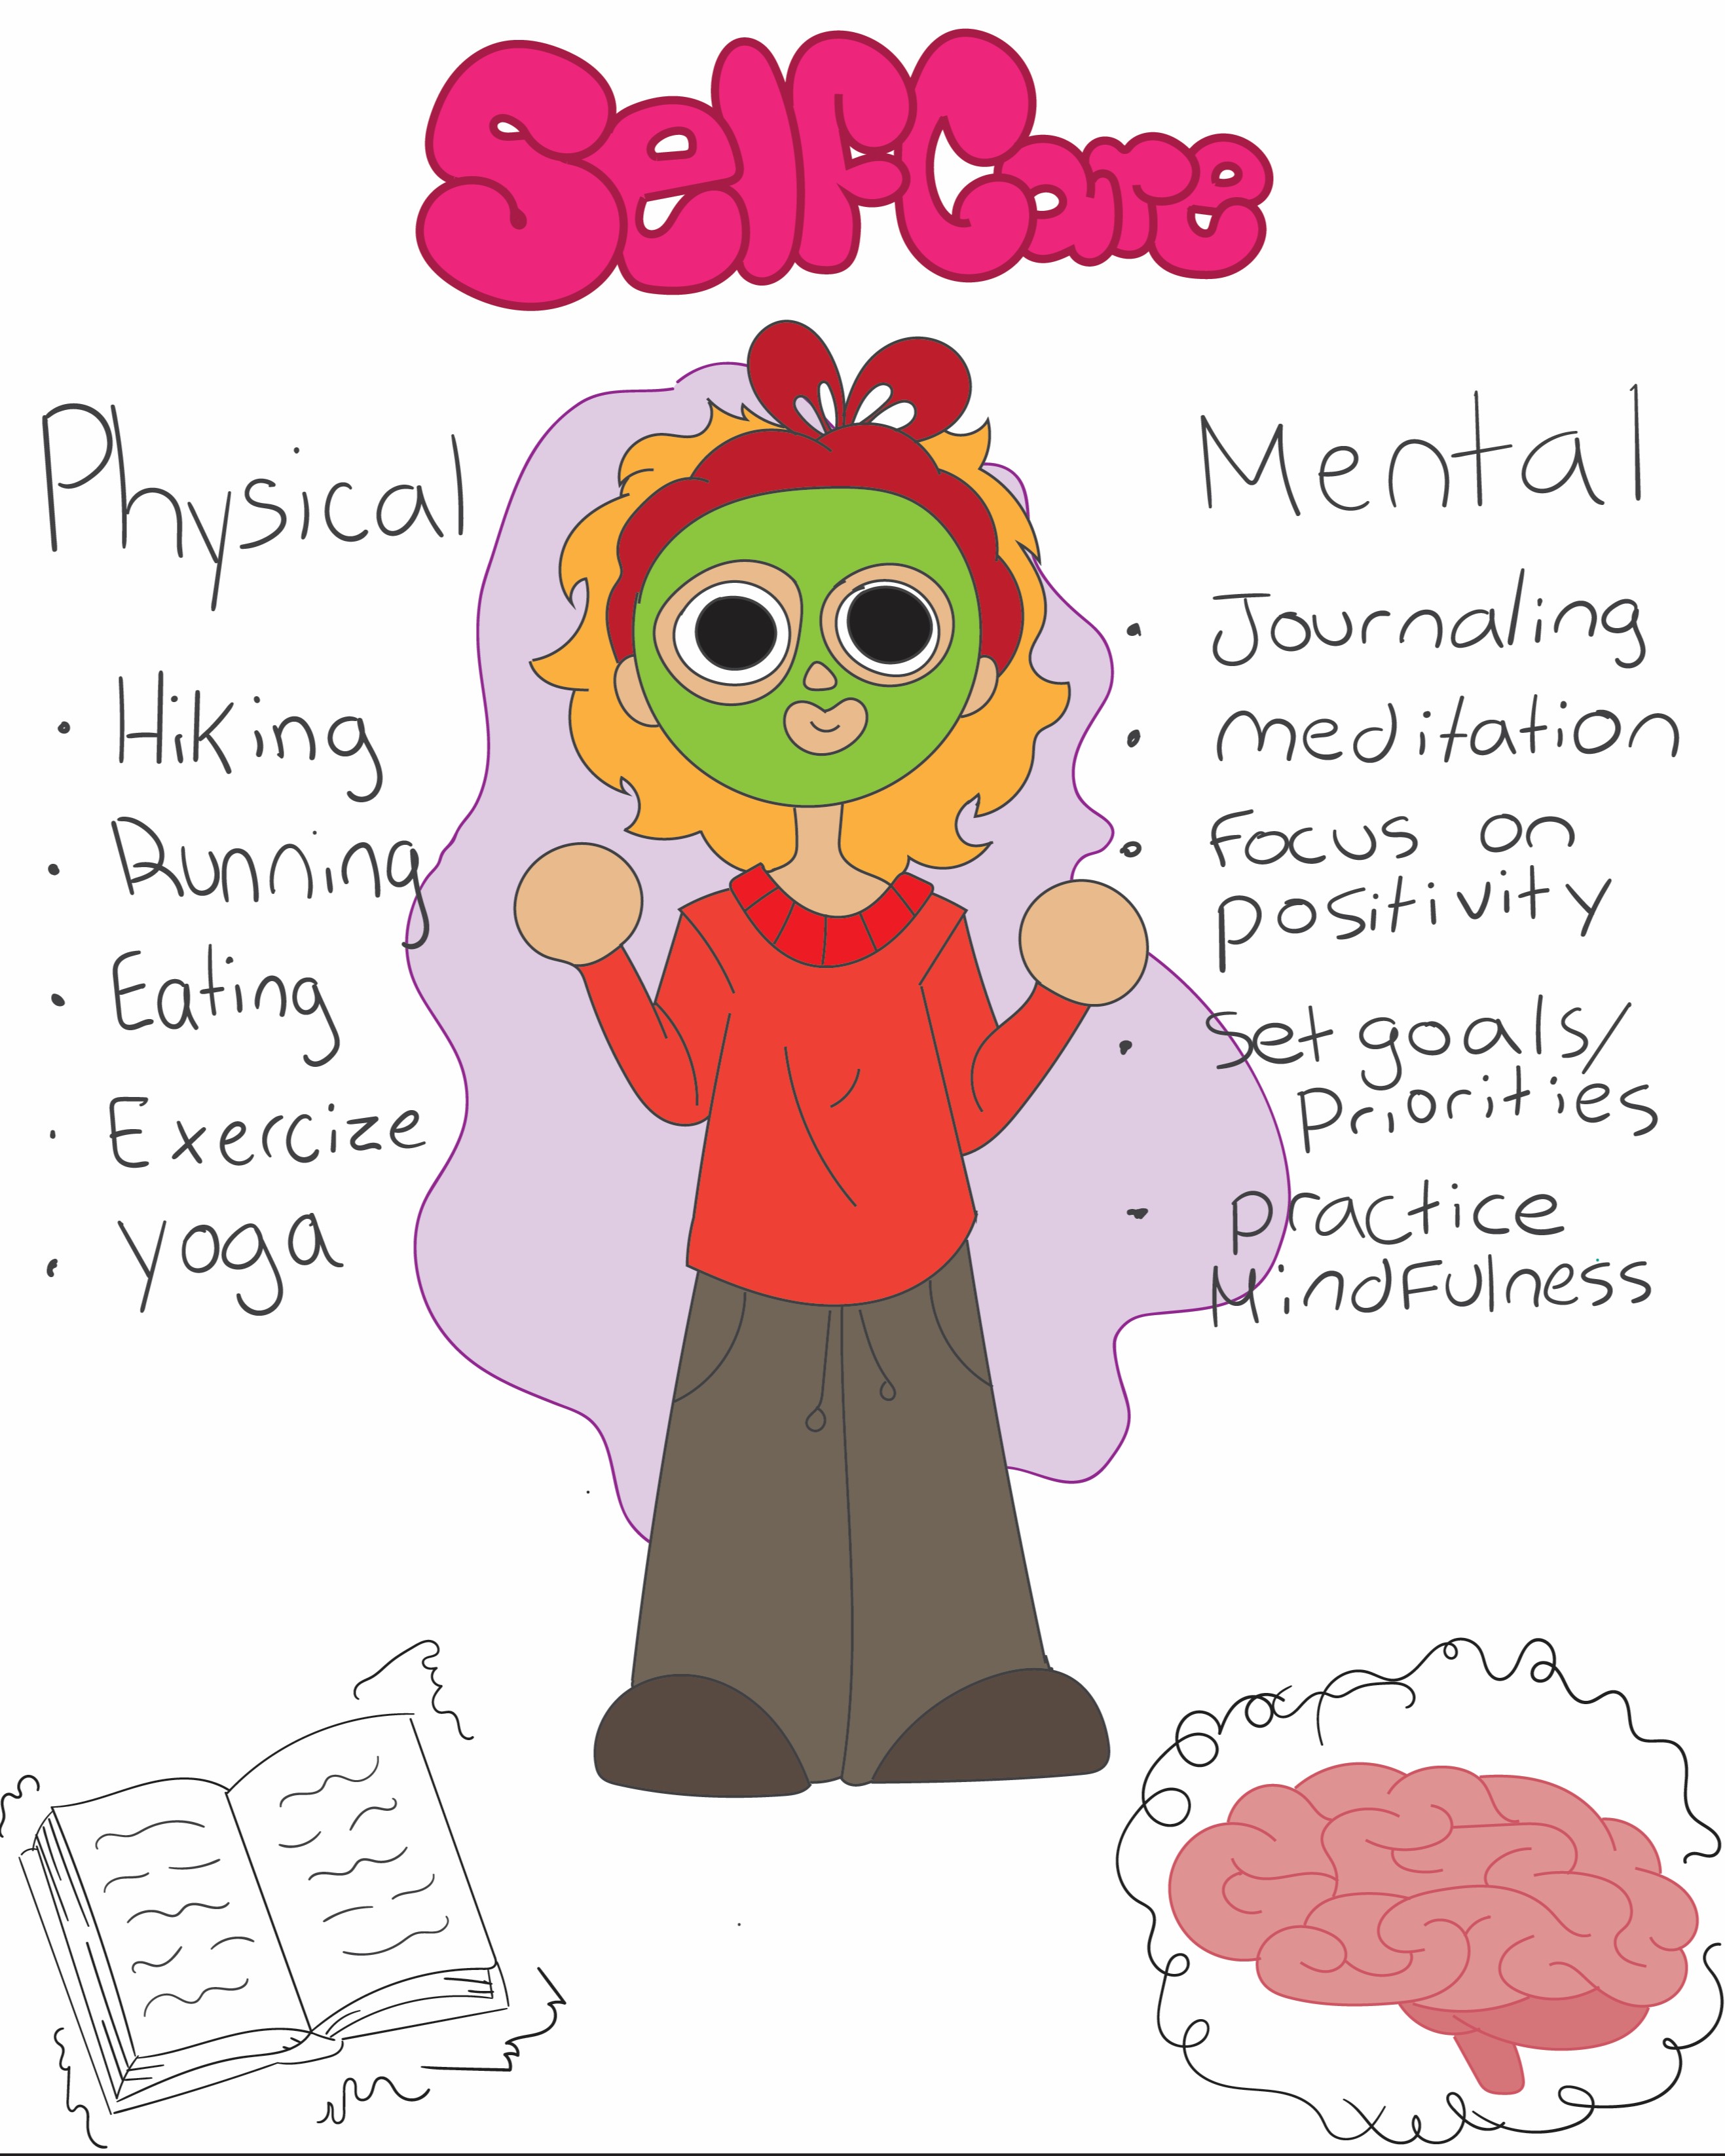 Self Care
Physical
• Hiking
• Running
• Eating
• Exercize
• yoga
Mental
• Journaling
• meditation
• Focus on
positivity
• Set goals/
Priorities
- practice
MindFulness